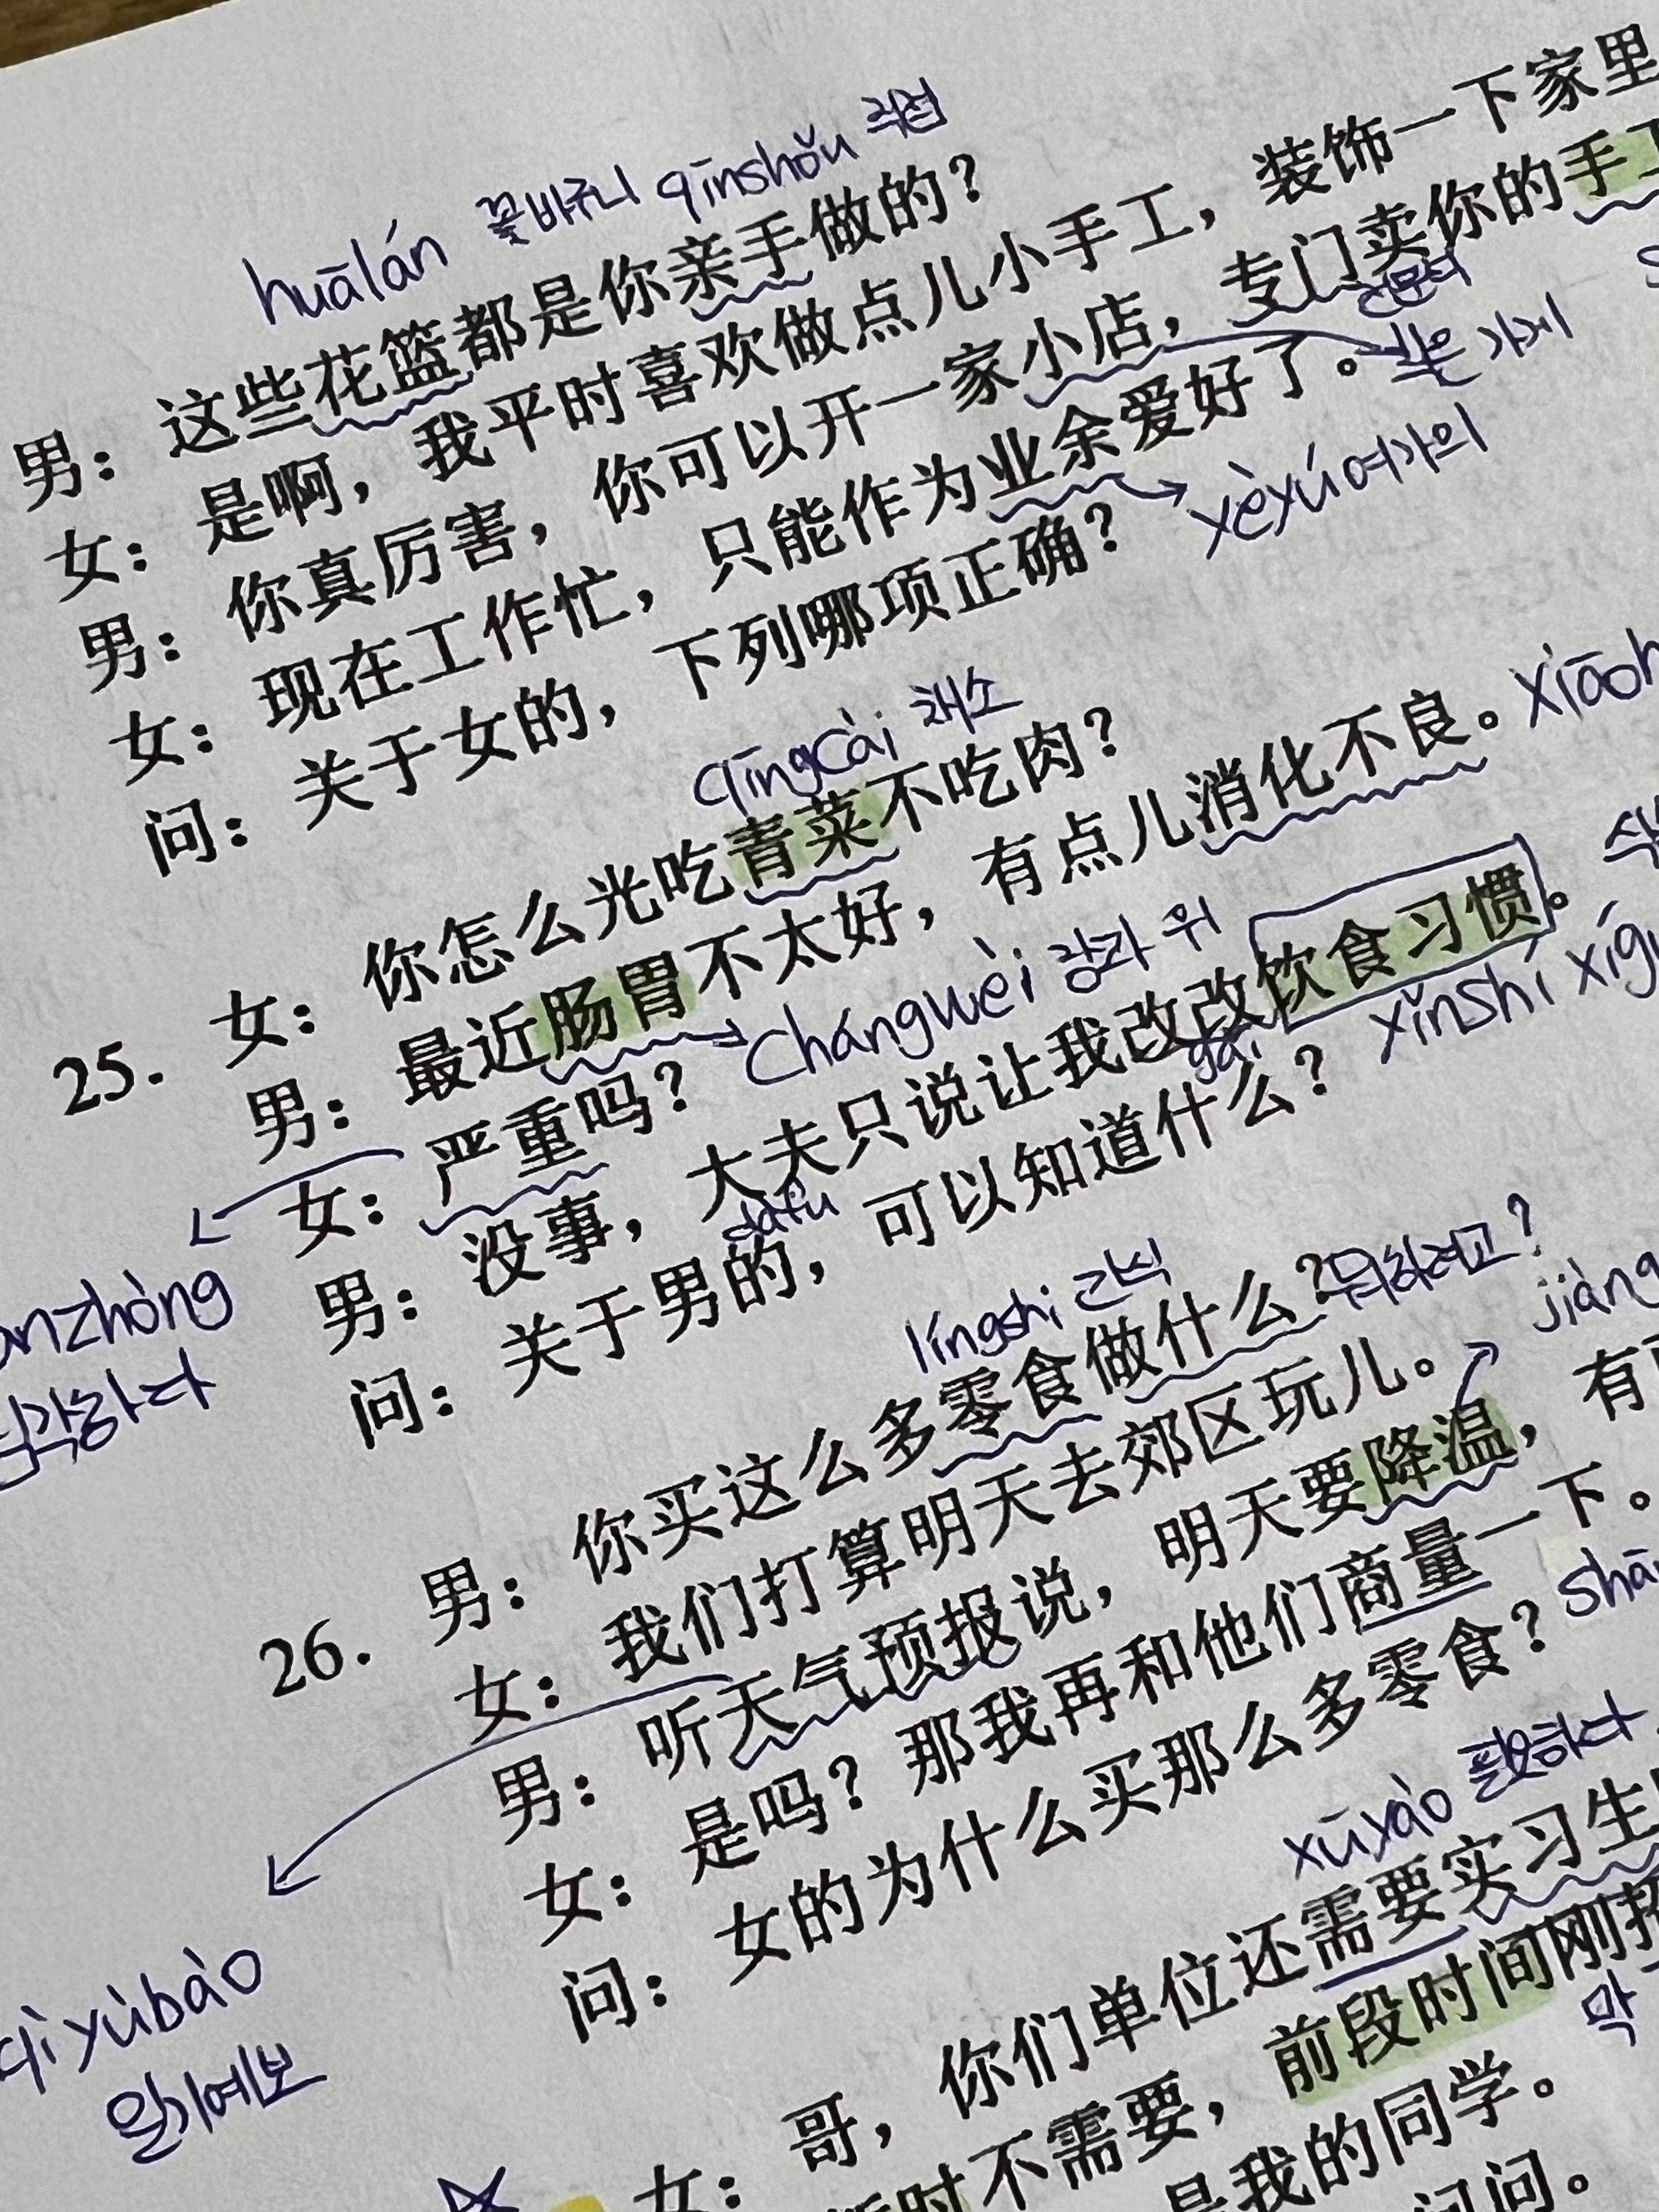 huālán 꽃바구니 qīnshǒu 직접
男：这些花篮都是你亲手做的？
女：是啊，我平时喜欢做点儿小手工，装饰一下家里
男：你真厉害，你可以开一家小店，专门卖你的手工
전문적
작은 가게
女：现在工作忙，只能作为业余爱好了。
xèyú 여가의
问：关于女的，下列哪项正确？
qīngcài 채소
25. 女：你怎么光吃青菜不吃肉？
男：最近肠胃不太好，有点儿消化不良。
chángwèi 장과 위
女：严重吗？
男：没事，大夫只说让我改改饮食习惯。
gǎi
xǐnshí
dàfu
问：关于男的，可以知道什么？
língshí 간식
26. 男：你买这么多零食做什么？ 뭐하려고?
女：我们打算明天去郊区玩儿。
jiàng
男：听天气预报说，明天要降温，有
女：是吗？那我再和他们商量一下。
问：女的为什么买那么多零食？
qìyùbào
일기예보
xūyào 필요하다
女：哥，你们单位还需要实习生
时不需要，前段时间刚招
막
是我的同学。
问问。